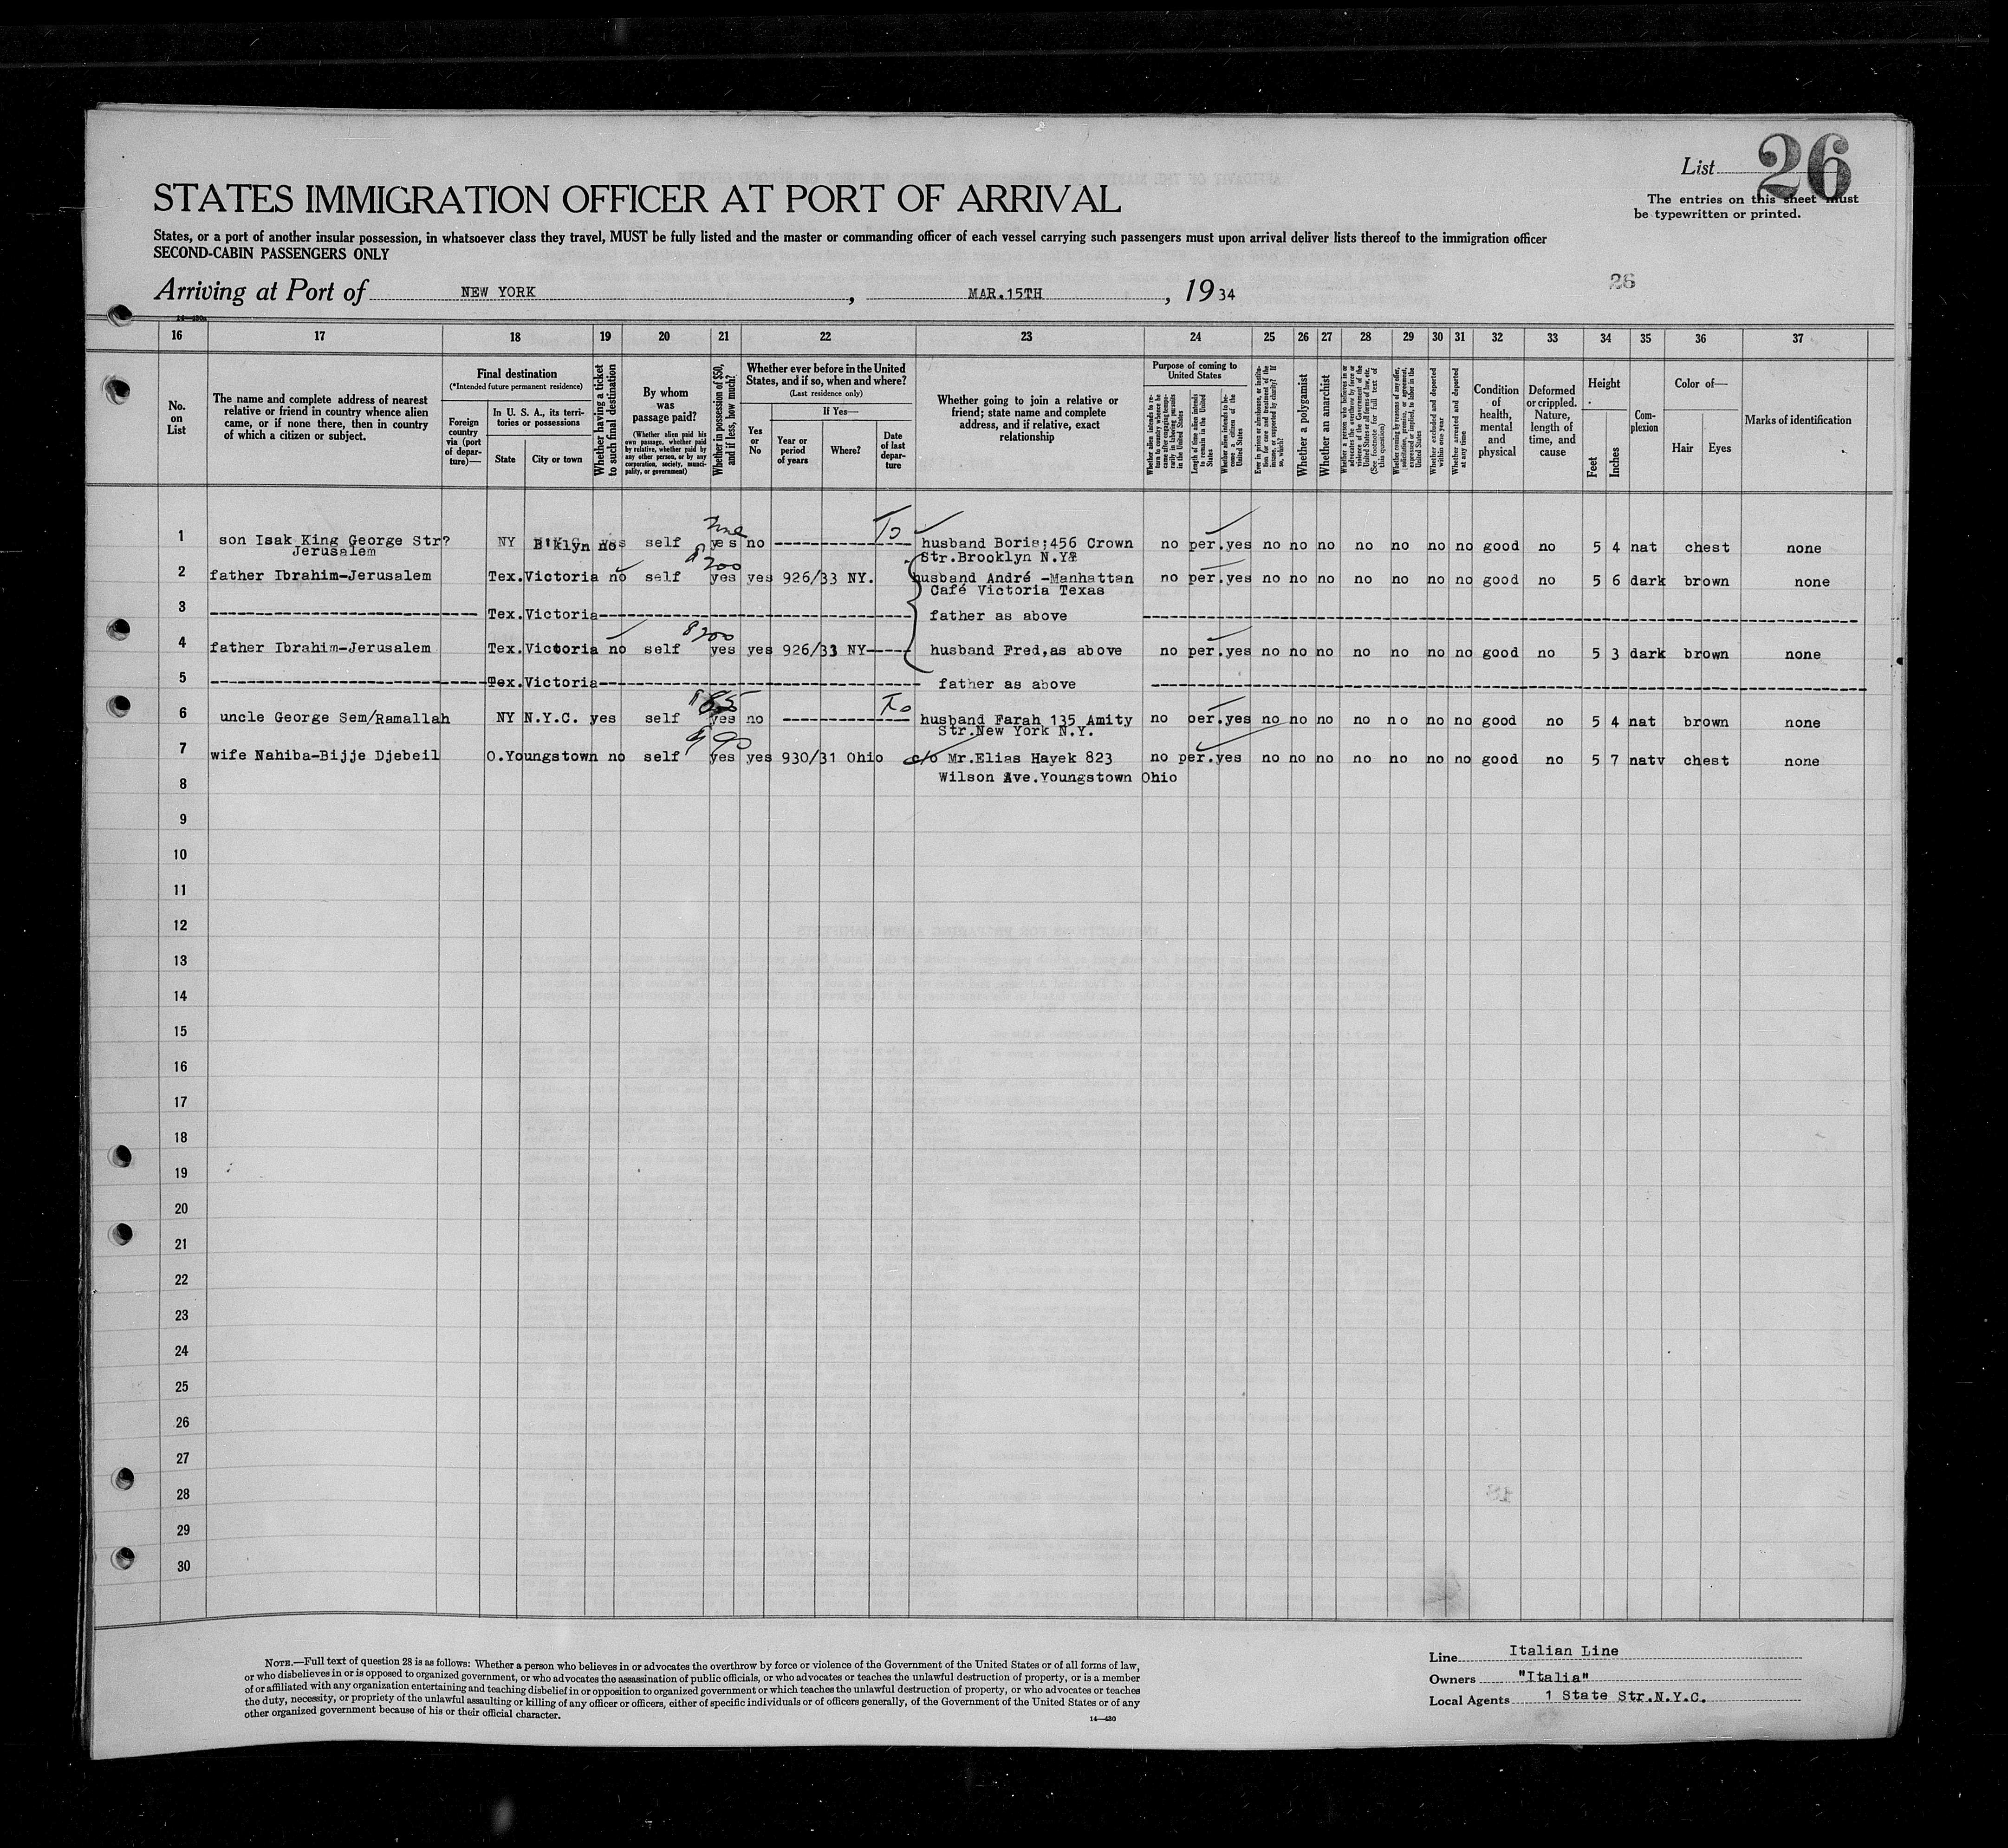 List 26
The entries on this sheet must
be typewritten or printed.
STATES IMMIGRATION OFFICER AT PORT OF ARRIVAL
States, or a port of another insular possession, in whatsoever class they travel, MUST be fully listed and the master or commanding officer of each vessel carrying such passengers must upon arrival deliver lists thereof to the immigration officer
SECOND-CABIN PASSENGERS ONLY
Arriving at Port of NEW YORK, MAR.15TH, 1934
26
16 17 18 19 20 21 22 23 24 25 26 27 28 29 30 31 32 33 34 35 36 37
No. on List
The name and complete address of nearest
relative or friend in country whence alien
came, or if none there, then in country
of which a citizen or subject.
Final destination
(*Intended future permanent residence)
Foreign country via (port of departure)—
In U. S. A., its territories or possessions
State
City or town
Whether having a ticket to such final destination
By whom was passage paid?
(Whether alien paid his own passage, whether paid by relative, whether paid by any other person, or by any corporation, society, municipality, or government)
Whether in possession of $50, and if less, how much?
Whether ever before in the United States, and if so, when and where?
(Last residence only)
Yes or No
If Yes—
Year or period of years
Where?
Date of last departure
Whether going to join a relative or
friend; state name and complete
address, and if relative, exact
relationship
Purpose of coming to United States
Whether alien intends to return to country whence he came after engaging temporarily in laboring pursuits in the United States
Length of time alien intends to remain in the United States
Whether alien intends to become a citizen of the United States
Ever in prison or almshouse, or institution for care and treatment of the insane, or supported by charity? If so, which?
Whether a polygamist
Whether an anarchist
Whether a person who believes in or advocates the overthrow by force or violence of the Government of the United States or all forms of law, etc. (See footnote for full text of this question)
Whether coming by reasons of any offer, solicitation, promise, or agreement, expressed or implied, to labor in the United States
Whether excluded and deported within one year
Whether arrested and deported at any time
Condition of health, mental and physical
Deformed or crippled. Nature, length of time, and cause
Height
Feet
Inches
Complexion
Color of—
Hair
Eyes
Marks of identification
1 son Isak King George Str? NY B'klyn no self yes no husband Boris;456 Crown no per. yes no no no no no no no good no 5 4 nat chest none
Jerusalem Str.Brooklyn N.Y
2 father Ibrahim-Jerusalem Tex. Victoria no self $200 yes yes 926/33 NY. husband André -Manhattan no per. yes no no no no no no no good no 5 6 dark brown none
Café Victoria Texas
3 Tex. Victoria father as above
4 father Ibrahim-Jerusalem Tex. Victoria no self $200 yes yes 926/33 NY husband Fred,as above no per. yes no no no no no no no good no 5 3 dark brown none
5 Tex. Victoria father as above
6 uncle George Sem/Ramallah NY N.Y.C. yes self yes no husband Farah 135 Amity no per. yes no no no no no no no good no 5 4 nat brown none
Str.New York N.Y.
7 wife Nahiba-Bijje Djebeil O. Youngstown no self $90 yes yes 930/31 Ohio c/o Mr.Elias Hayek 823 no per. yes no no no no no no no good no 5 7 natv chest none
Wilson Ave.Youngstown Ohio
8
9
10
11
12
13
14
15
16
17
18
19
20
21
22
23
24
25
26
27
28
29
30
NOTE.—Full text of question 28 is as follows: Whether a person who believes in or advocates the overthrow by force or violence of the Government of the United States or of all forms of law,
or who disbelieves in or is opposed to organized government, or who advocates the assassination of public officials, or who advocates or teaches the unlawful destruction of property, or is a member
of or affiliated with any organization entertaining and teaching disbelief in or opposition to organized government or which teaches the unlawful destruction of property, or who advocates or teaches
the duty, necessity, or propriety of the unlawful assaulting or killing of any officer or officers, either of specific individuals or of officers generally, of the Government of the United States or of any
other organized government because of his or their official character.
14—430
Line Italian Line
Owners "Italia"
Local Agents 1 State Str.N.Y.C.